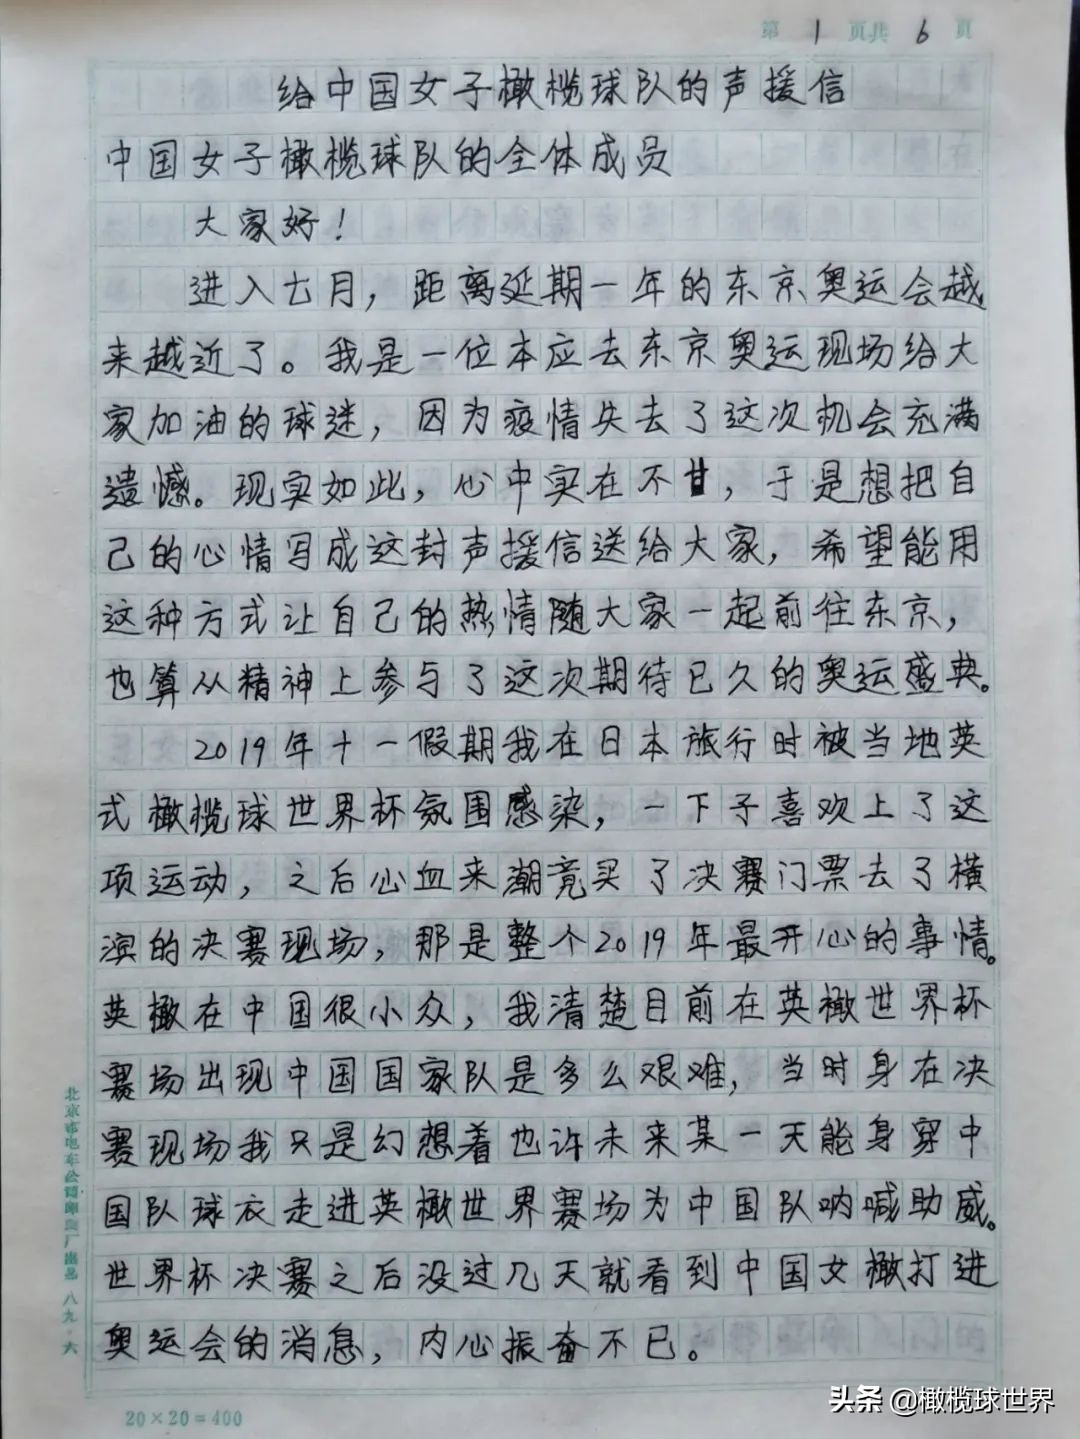 第 1 页共 6 页
给中国女子橄榄球队的声援信
中国女子橄榄球队的全体成员
大家好！
进入七月，距离延期一年的东京奥运会越
来越近了。我是一位本应去东京奥运现场给大
家加油的球迷，因为疫情失去了这次机会充满
遗憾。现实如此，心中实在不甘，于是想把自
己的心情写成这封声援信送给大家，希望能用
这种方式让自己的热情随大家一起前往东京，
也算从精神上参与了这次期待已久的奥运盛典。
2019年十一假期我在日本旅行时被当地英
式橄榄球世界杯氛围感染，一下子喜欢上了这
项运动，之后心血来潮竟买了决赛门票去了横
滨的决赛现场，那是整个2019年最开心的事情。
英橄在中国很小众，我清楚目前在英橄世界杯
赛场出现中国国家队是多么艰难，当时身在决
赛现场我只是幻想着也许未来某一天能身穿中
国队球衣走进英橄世界赛场为中国队呐喊助威。
世界杯决赛之后没过几天就看到中国女橄打进
奥运会的消息，内心振奋不已。
北京市电车公司印刷厂出品 八九·六
20×20=400
头条 @橄榄球世界